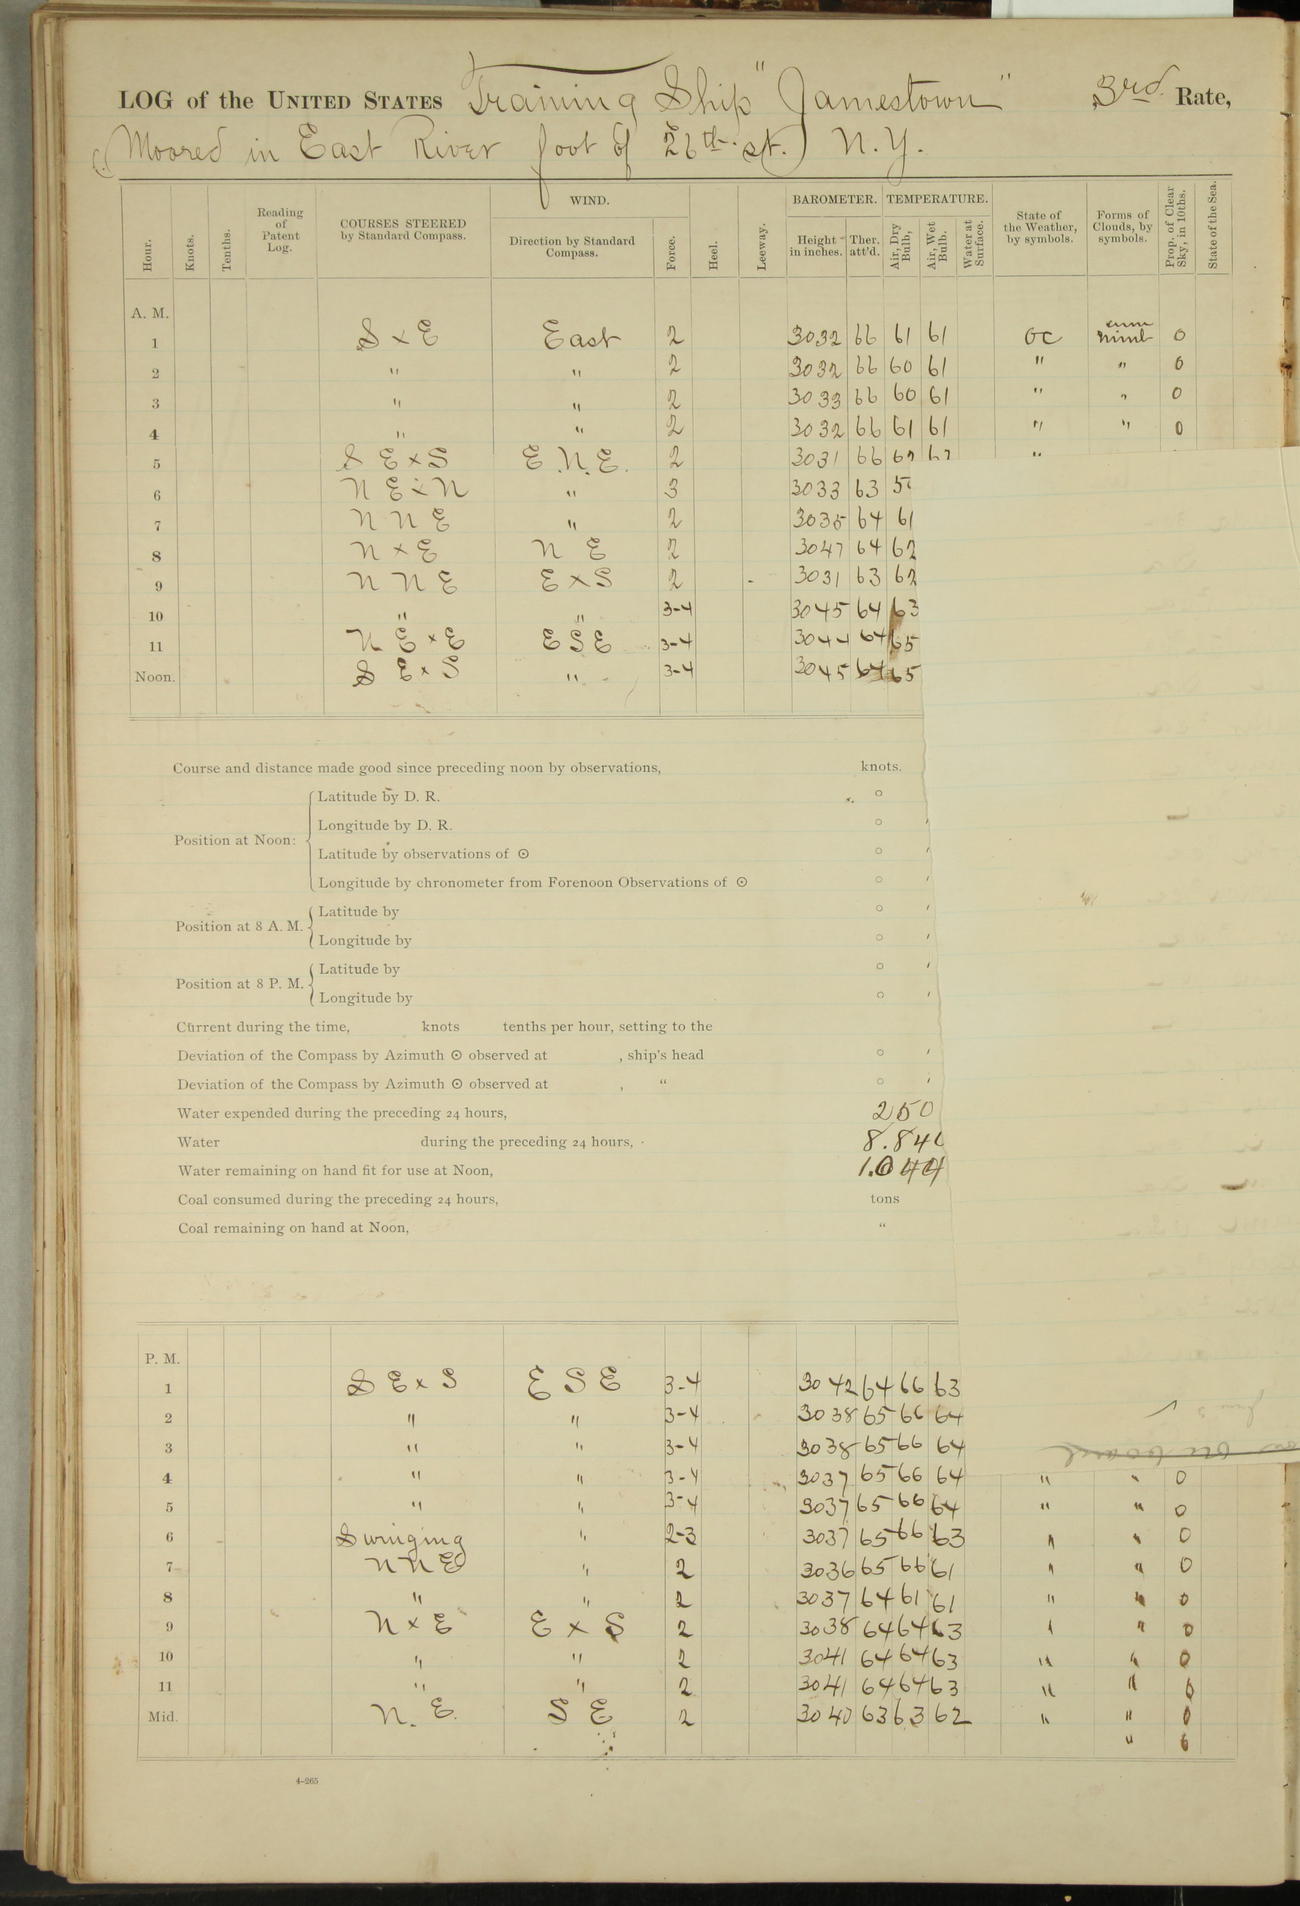 LOG of the UNITED STATES Training Ship "Jamestown" 3rd Rate,
(Moored in East River foot of 26th st.) N.Y.
WIND. BAROMETER. TEMPERATURE.
Hour. Knots. Tenths. Reading of Patent Log. COURSES STEERED by Standard Compass. Direction by Standard Compass. Force. Heel. Leeway. Height in inches. Ther. att'd. Air, Dry Bulb, Air, Wet Bulb. Water at Surface. State of the Weather, by symbols. Forms of Clouds, by symbols. Prop. of Clear Sky, in 10ths. State of the Sea.
A. M.
1 S x E East 2 3032 66 61 61 OC cum nimb 0
2 " " 2 3032 66 60 61 " " 0
3 " " 2 3033 66 60 61 " " 0
4 " " 2 3032 66 61 61 " " 0
5 S E x S E.N.E. 2 3031 66 "
6 N E x N " 3 3033 63
7 N N E " 2 3035 64 61
8 N x E N E 2 3047 64 62
9 N N E E x S 2 3031 63 62
10 " " 3-4 3045 64 63
11 N E x E E S E 3-4 3044 64 65
Noon. S E x S " 3-4 3045 64 65
Course and distance made good since preceding noon by observations, knots.
Position at Noon: Latitude by D. R. ° '
Longitude by D. R. ° '
Latitude by observations of ⊙ ° '
Longitude by chronometer from Forenoon Observations of ⊙ ° '
Position at 8 A. M. Latitude by ° '
Longitude by ° '
Position at 8 P. M. Latitude by ° '
Longitude by ° '
Current during the time, knots tenths per hour, setting to the
Deviation of the Compass by Azimuth ⊙ observed at , ship's head ° '
Deviation of the Compass by Azimuth ⊙ observed at , " ° '
Water expended during the preceding 24 hours, 250
Water during the preceding 24 hours,
Water remaining on hand fit for use at Noon,
Coal consumed during the preceding 24 hours, tons
Coal remaining on hand at Noon, "
P. M.
1 S E x S E S E 3-4 3042 64 66 63
2 " " 3-4 3038 65 66 64
3 " " 3-4 3038 65 66 64
4 " " 3-4 3037 65 66 64 " " 0
5 " " 3-4 3037 65 66 64 " " 0
6 Swinging " 2-3 3037 65 66 63 " " 0
7 N N E " 2 3036 65 66 61 " " 0
8 " " 2 3037 64 61 61 " " 0
9 N x E E x S 2 3038 64 64 63 " " 0
10 " " 2 3041 64 64 63 " " 0
11 " " 2 3041 64 64 63 " " 0
Mid. N. E. S E 2 3040 63 63 62 " " 0
" 0
4-265